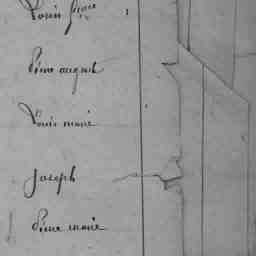 Louis
Pierre august
Louis marie
Joseph
Pierre marie